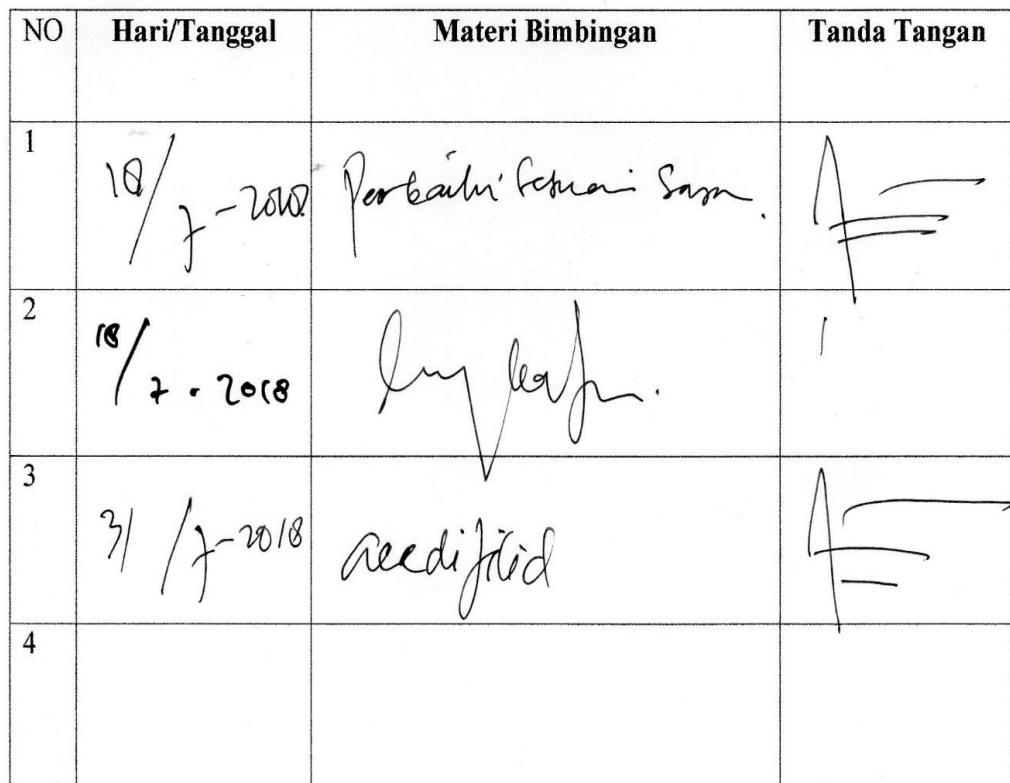 NO Hari/Tanggal Materi Bimbingan Tanda Tangan
1 18/7-2018 Perbaiki sesuai saran.
2 18/7-2018
3 31/7-2018 acc dijilid
4